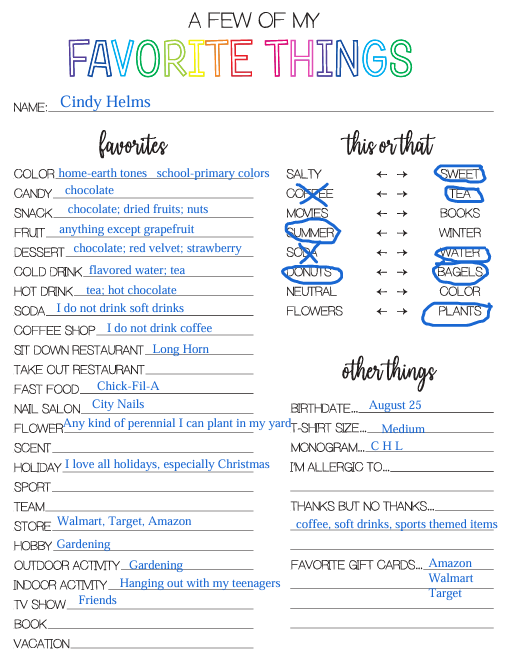 A FEW OF MY
FAVORITE THINGS
NAME: Cindy Helms
favorites
COLOR home-earth tones school-primary colors
CANDY chocolate
SNACK chocolate; dried fruits; nuts
FRUIT anything except grapefruit
DESSERT chocolate; red velvet; strawberry
COLD DRINK flavored water; tea
HOT DRINK tea; hot chocolate
SODA I do not drink soft drinks
COFFEE SHOP I do not drink coffee
SIT DOWN RESTAURANT Long Horn
TAKE OUT RESTAURANT
FAST FOOD Chick-Fil-A
NAIL SALON City Nails
FLOWER Any kind of perennial I can plant in my yard
SCENT
HOLIDAY I love all holidays, especially Christmas
SPORT
TEAM
STORE Walmart, Target, Amazon
HOBBY Gardening
OUTDOOR ACTIVITY Gardening
INDOOR ACTIVITY Hanging out with my teenagers
TV SHOW Friends
BOOK
VACATION
this or that
SALTY ← → SWEET
COFFEE ← → TEA
MOVIES ← → BOOKS
SUMMER ← → WINTER
SODA ← → WATER
DONUTS ← → BAGELS
NEUTRAL ← → COLOR
FLOWERS ← → PLANTS
other things
BIRTHDATE... August 25
T-SHIRT SIZE... Medium
MONOGRAM... C H L
I'M ALLERGIC TO...
THANKS BUT NO THANKS...
coffee, soft drinks, sports themed items
FAVORITE GIFT CARDS... Amazon
Walmart
Target